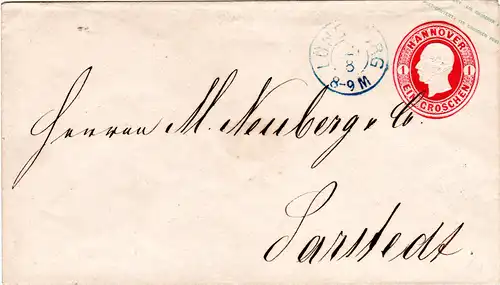 HANNOVER
1 1
EIN GROSCHEN
8
8-9 M
Herren M. Neuberg & Co.
Sarstedt.